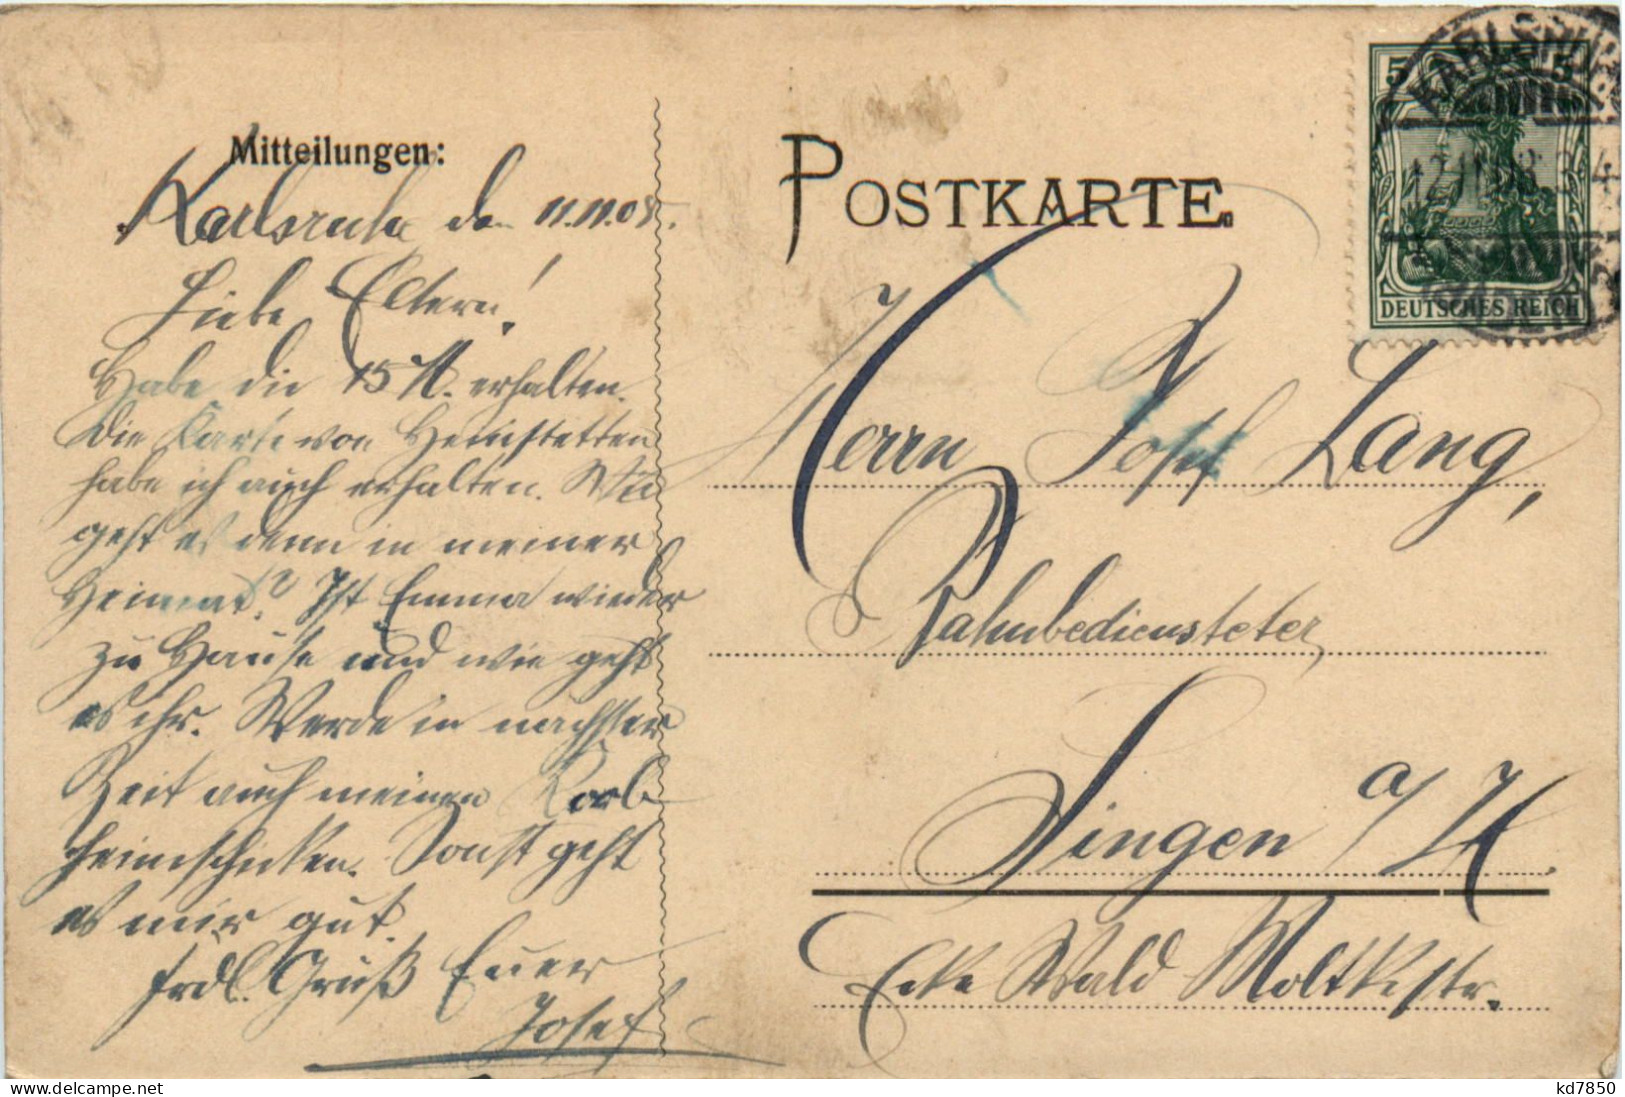 Mitteilungen:
Karlsruhe den 11.11.08.
Liebe Eltern!
Habe die 15 M. erhalten.
Die Karte von Heinstetten
habe ich auch erhalten. Wie
geht es denn in meiner
Heimat? Ist Emma wieder
zu Hause und wie geht
es ihr. Werde in nächster
Zeit auch meinen Korb
heimschicken. Sonst geht
es mir gut.
Frdl. Gruß Euer
Josef
POSTKARTE.
KARLSRUHE
5 5
DEUTSCHES REICH
Herrn Josef Lang,
Bahnbediensteter
Singen a/H
Ecke Wald Moltkestr.
kd7850